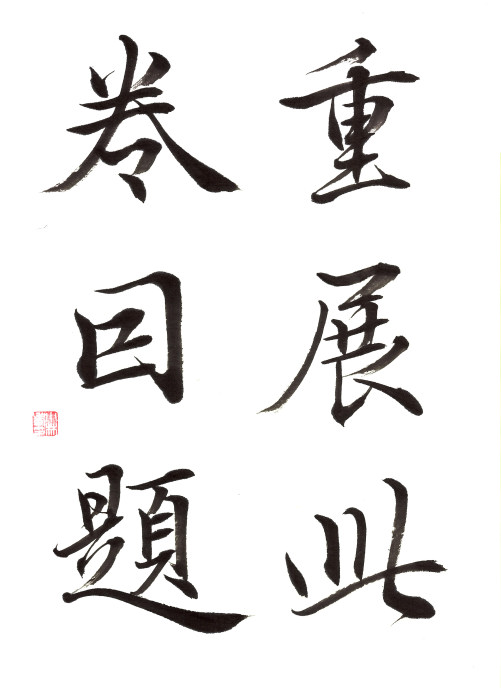 重展此
卷囙題